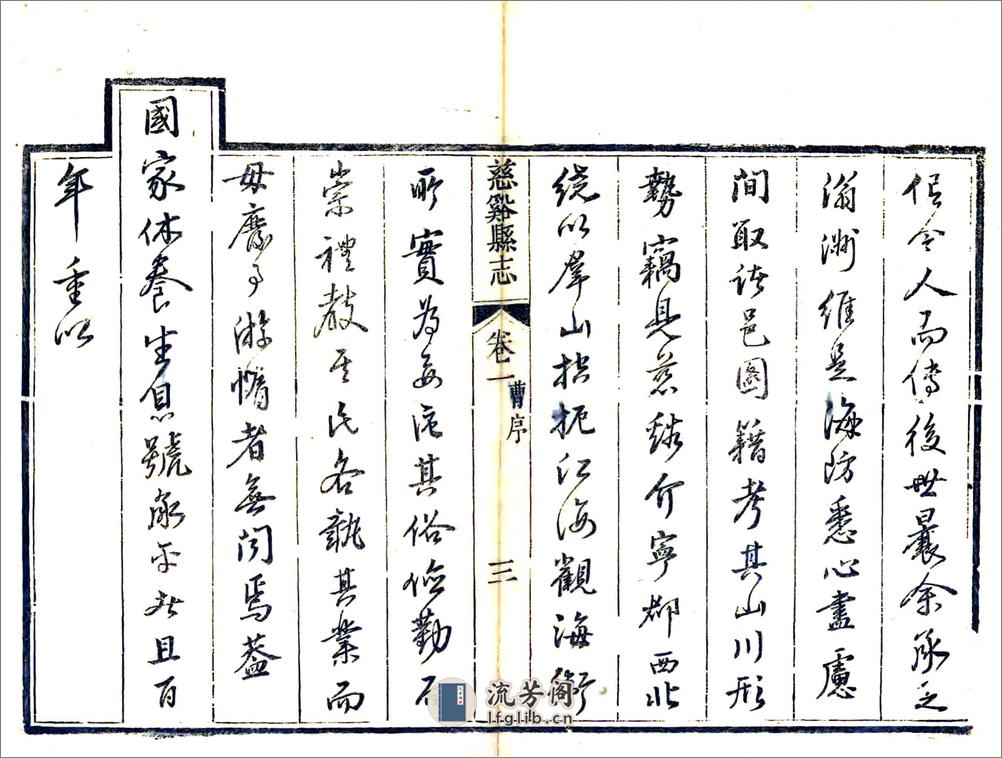 俟令人而傳後世曩余承乏
滃洲維是海防悉心盡慮
間取諸邑圖籍考其山川形
勢竊見慈谿介寧郡西北
繞以羣山控扼江海觀海衛
慈谿縣志
卷一
曹序
三
所實為要區其俗儉勤而
崇禮教其氏各執其業而
毋廢事游惰者無聞焉蓋
國家休養生息號承平者且百
年重以
流芳阁
lfglib.cn